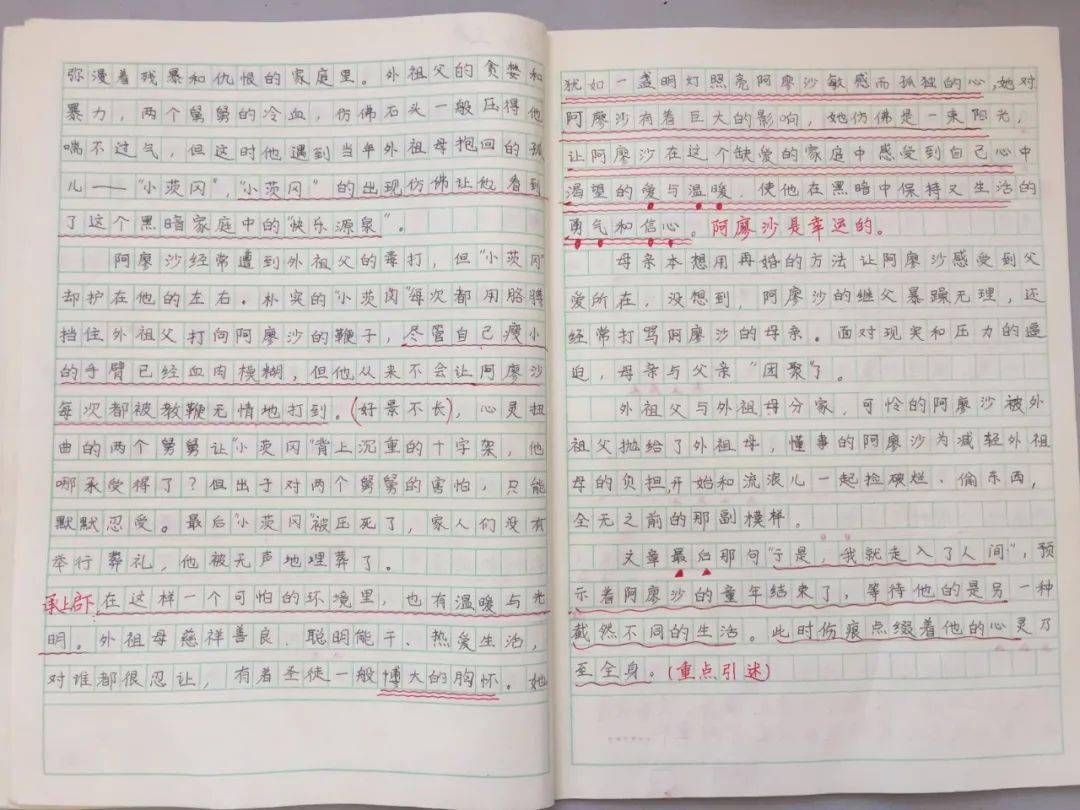 弥漫着残暴和仇恨的家庭里。外祖父的贪婪和
暴力，两个舅舅的冷血，仿佛石头一般压得他
喘不过气，但这时他遇到当年外祖母抱回的孤
儿——“小茨冈”，“小茨冈”的出现仿佛让他看到
了这个黑暗家庭中的“快乐源泉”。
阿廖沙经常遭到外祖父的毒打，但“小茨冈”
却护在他的左右。朴实的“小茨冈”每次都用胳膊
挡住外祖父打向阿廖沙的鞭子，尽管自己瘦小
的手臂已经血肉模糊，但他从来不会让阿廖沙
每次都被教鞭无情地打到。（好景不长），心灵扭
曲的两个舅舅让“小茨冈”背上沉重的十字架，他
哪承受得了？但出于对两个舅舅的害怕，只能
默默忍受。最后“小茨冈”被压死了，家人们没有
举行葬礼，他被无声地埋葬了。
承上启下 在这样一个可怕的环境里，也有温暖与光
明。外祖母慈祥善良、聪明能干、热爱生活，
对谁都很忍让，有着圣徒一般博大的胸怀。她
犹如一盏明灯照亮阿廖沙敏感而孤独的心，她对
阿廖沙有着巨大的影响，她仿佛是一束阳光，
让阿廖沙在这个缺爱的家庭中感受到自己心中
渴望的爱与温暖，使他在黑暗中保持对生活的
勇气和信心。阿廖沙是幸运的。
母亲本想用再婚的方法让阿廖沙感受到父
爱所在，没想到，阿廖沙的继父暴躁无理，还
经常打骂阿廖沙的母亲。面对现实和压力的逼
迫，母亲与父亲“团聚”了。
外祖父与外祖母分家，可怜的阿廖沙被外
祖父抛给了外祖母，懂事的阿廖沙为减轻外祖
母的负担，开始和流浪儿一起捡破烂、偷东西，
全无之前的那副模样。
文章最后那句“于是，我就走入了人间”，预
示着阿廖沙的童年结束了，等待他的是另一种
截然不同的生活。此时伤痕点缀着他的心灵乃
至全身。（重点引述）